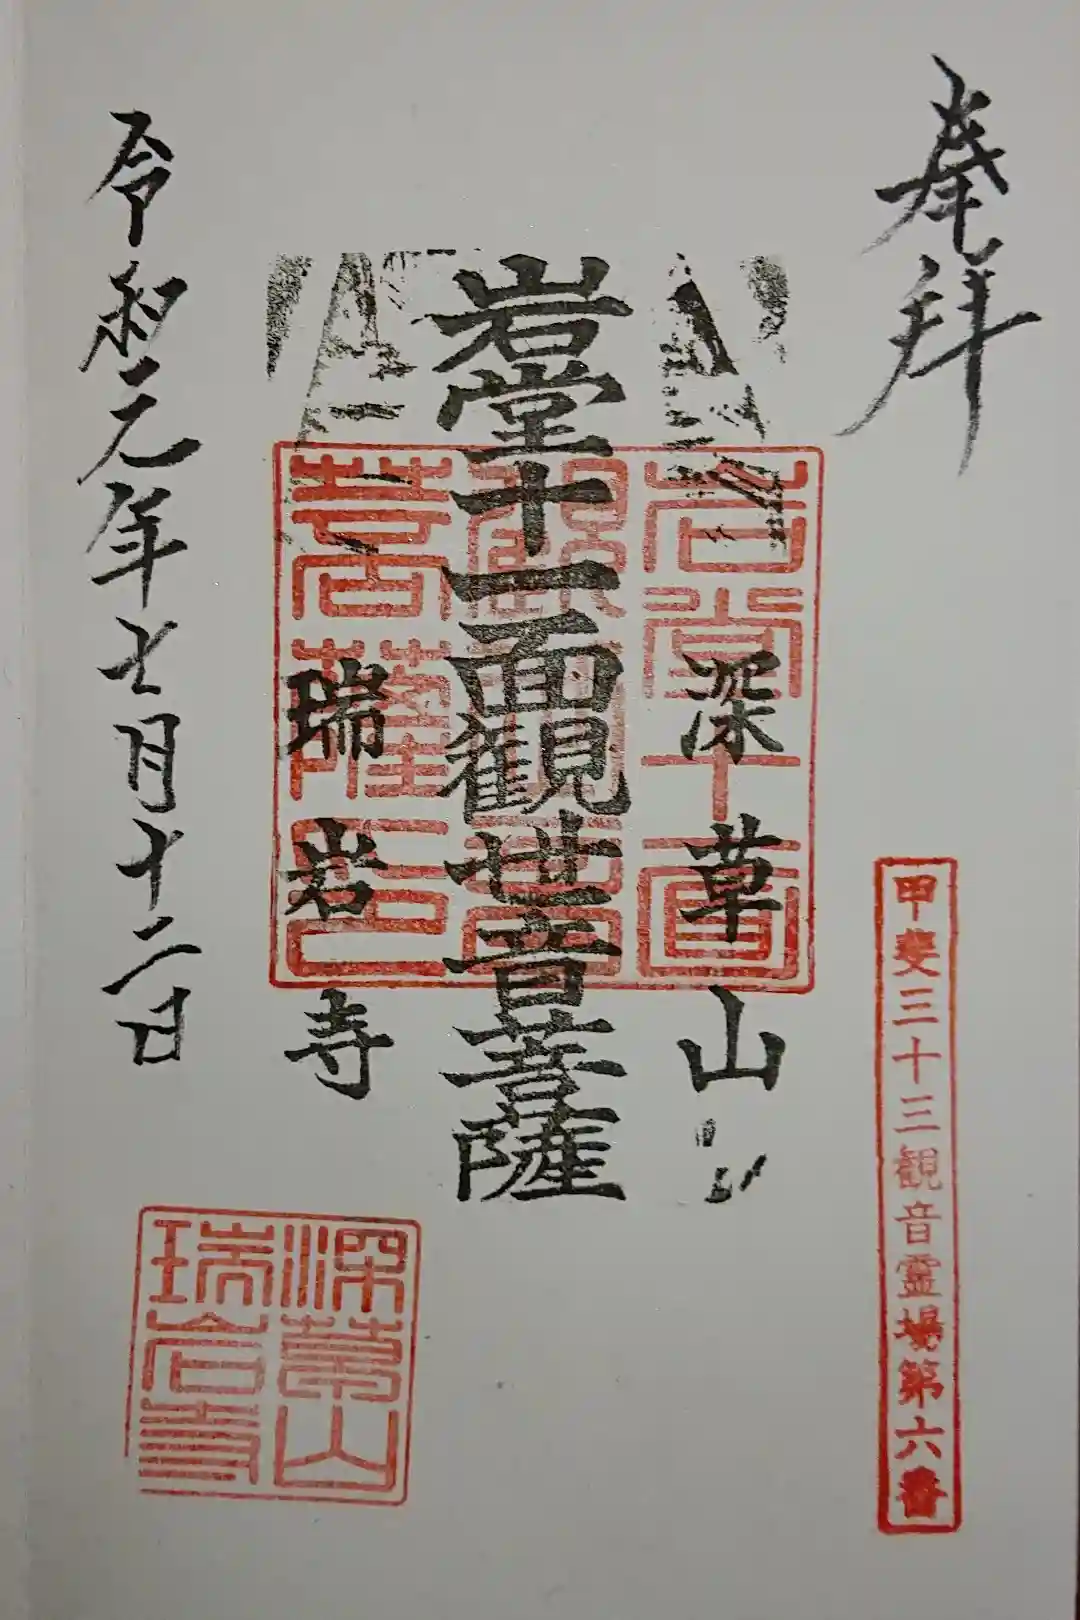 奉拝
甲斐三十三観音霊場第六番
深草山
岩堂十一面観世音菩薩
瑞岩寺
令和元年七月十二日
岩堂十一面
観世音
菩薩印
深草山
瑞岩寺